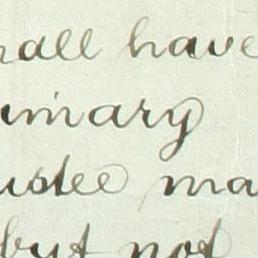 hall have
imary
ustee ma
but not